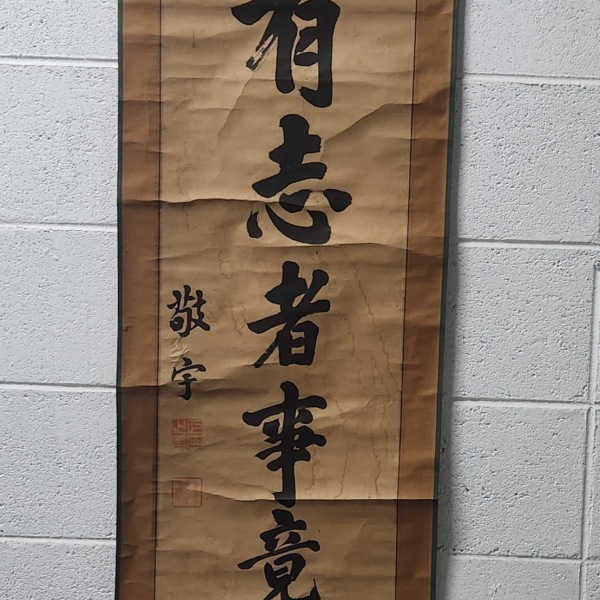 有志者事竟
敬宇